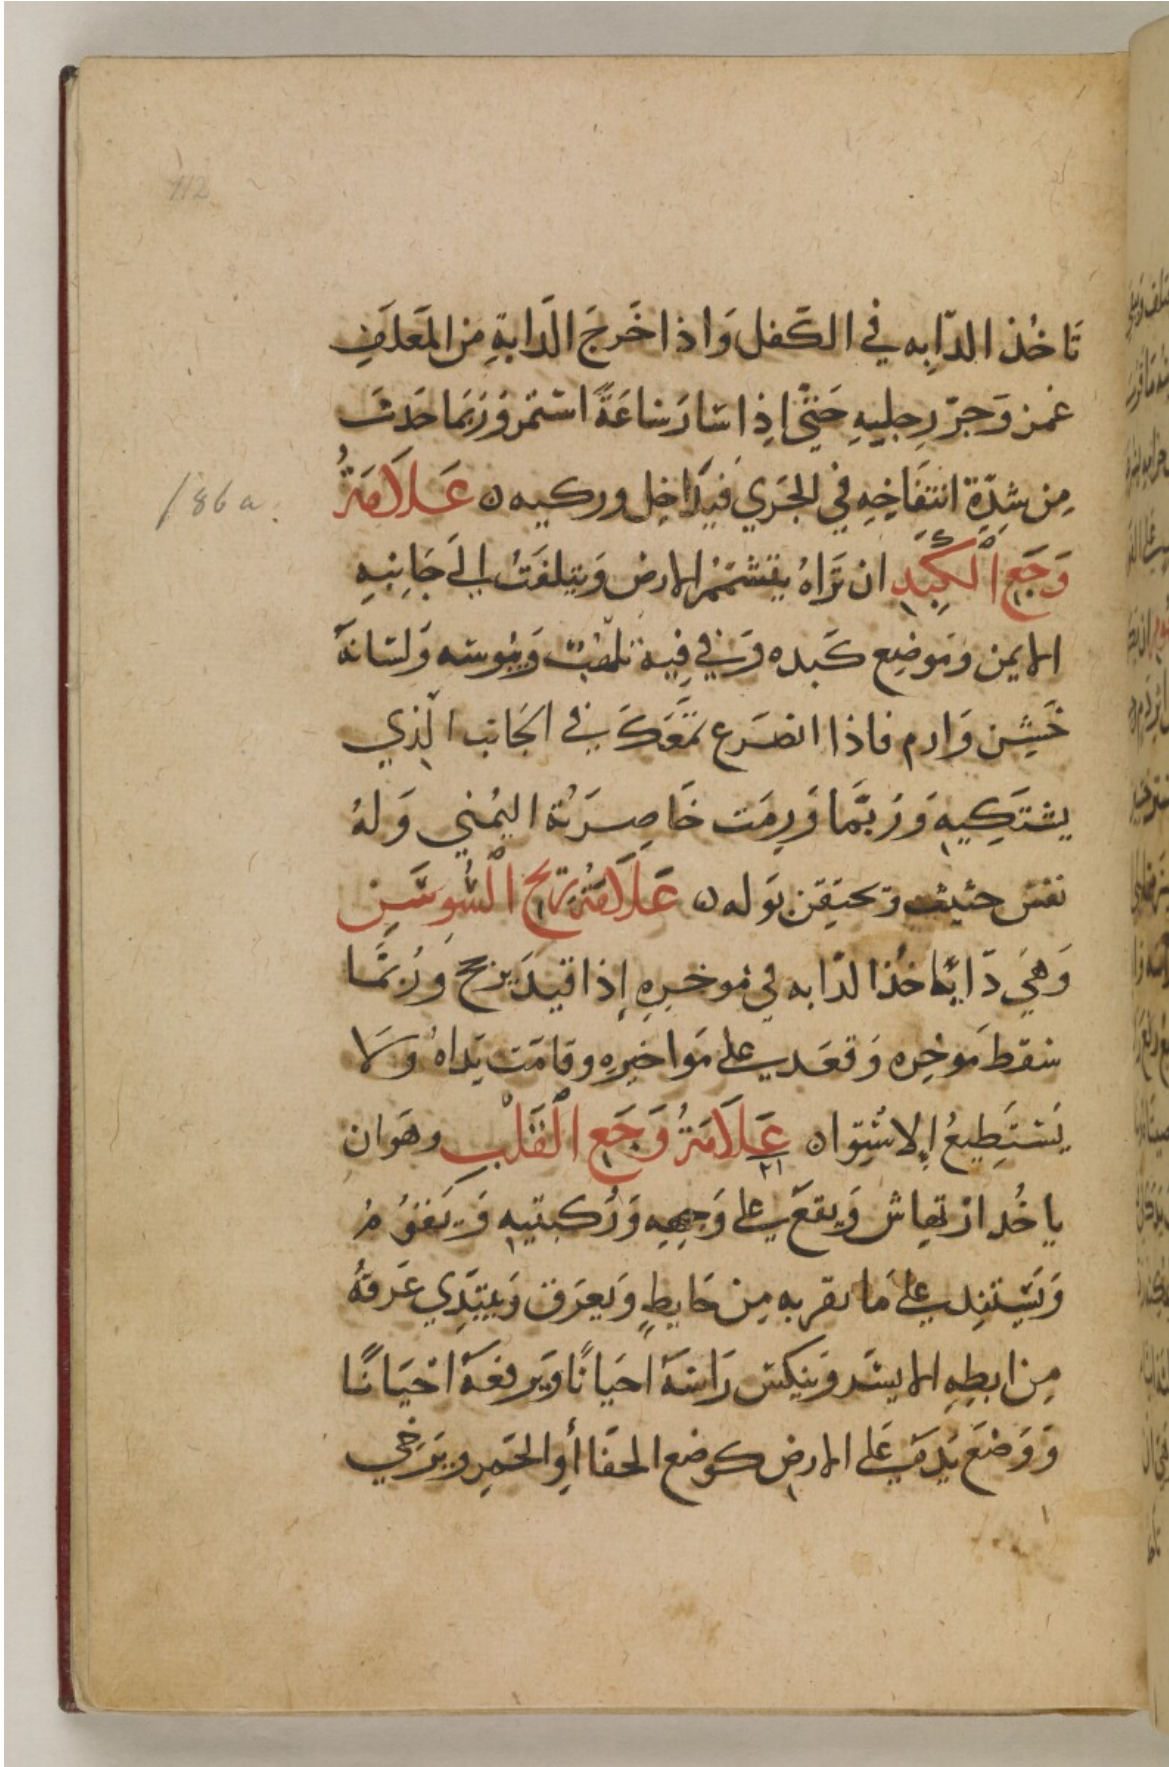 112
تَاخُذ الدّابِه في الكَفل وَاذا خَرجَ الَدابةِ مِن المَعلَفِ
غمزَ وَجرّ رِجليهِ حَتّى اِذا سَارَ سَاعَةً استمَر وَرُبمَا حَدثَ
مِن شِدّةِ انتفَاخِهِ في الجَري فَيدَاخِل وركيه ٥ عَلَامَةُ
186a.
وَجَعِ اَلكَبِدِ ان تَرَاهُ يتشمَمُ الارضَ وَيتلفَتُ الَى جَانِبهِ
الايمن وَموَضِع كَبده وَفي فِيهِ تلهّب وَيبُوسه وَلسَانهُ
خَشِن وَارم فاذا انصَرَع تمَعَكَ في الجَانب الّذي
يشتَكِيهِ وَرُبَّما وَرِمَت خَاصِرَتُهُ اليُمنى وَلهُ
نفَس حثيث وَيحتقِن بَوله ٥ عَلَامَةُ رِيحِ اَلسُوسَنِ
وَهيَ دَابّة تاخُذ الدّابه في مُوخرِهِ إذا قيدَ يزحَ وَرُبَّمَا
سَقطَ مَوخِره وَقعَدَ على مَواخيرِه وقامَت يَداهُ وَلَا
يَستَطِيعُ الاسْتِوا ٥ عَلَامَةُ وَجَعِ اَلقَلْبِ وهَوان
ياخُد ارتِعاش وَيقعَ على وَجهِهِ وَرُكبتيهِ وَيَقوُمُ
وَيَستنِد على مَا يقربه مِن حَايطٍ وَيعرَق وَيبتَدِي عَرقهُ
مِن ابطِهِ الايسَر وَينكسَ رَاسَهُ احيَانًا وَيَرفعَهُ احْيَانًا
وَوَضعَ يدَيهِ عَلى الارضِ كوضع الحفَا أوِ الحَمِر ويَرَخي